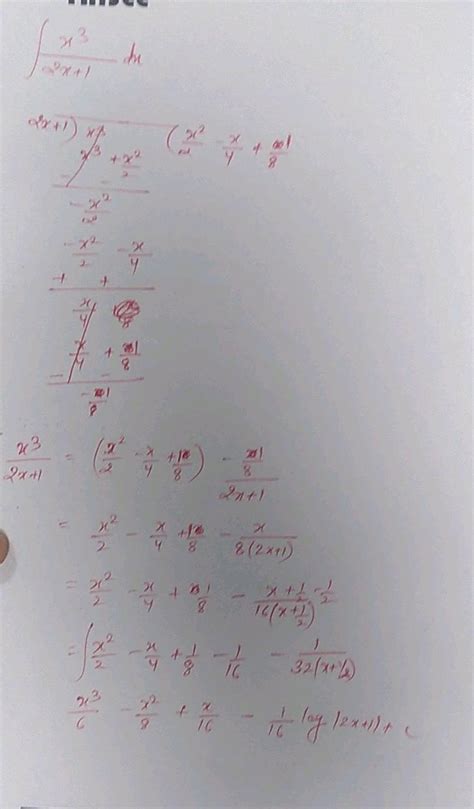 ∫ x³/(2x+1) dx
2x+1) x³ (x²/2 - x/4 + 1/8
x³ + x²/2
- -
-x²/2
-x²/2 - x/4
+ +
x/4
x/4 + 1/8
- -
-1/8
x³/(2x+1) = (x²/2 - x/4 + 1/8) - (1/8)/(2x+1)
= x²/2 - x/4 + 1/8 - x/(8(2x+1))
= x²/2 - x/4 + 1/8 - (x + 1/2 - 1/2)/(16(x + 1/2))
= ∫ x²/2 - x/4 + 1/8 - 1/16 - 1/(32(x + 1/2))
x³/6 - x²/8 + x/16 - 1/16 log |2x+1| + c